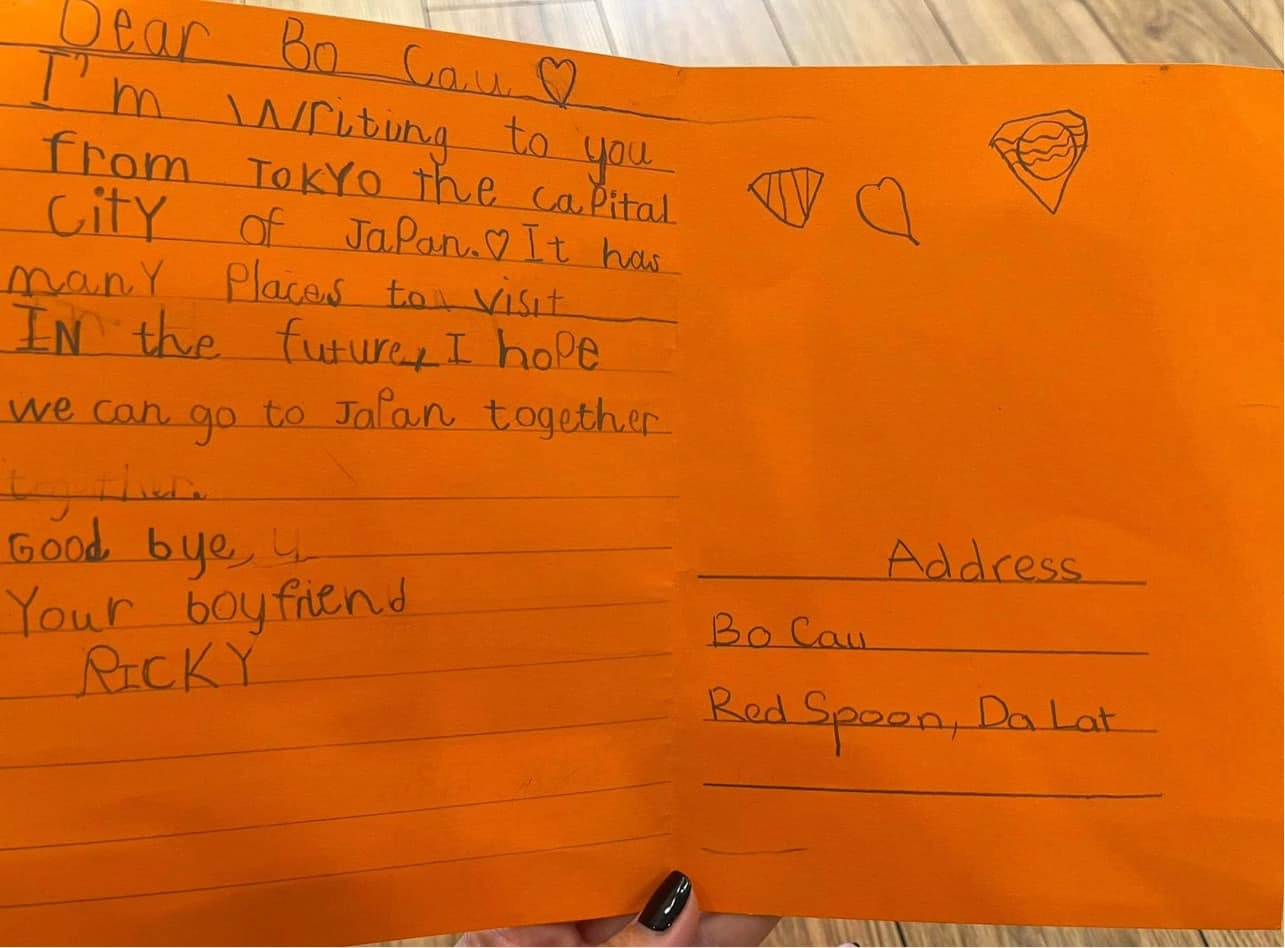 Dear Bo Cau ♡
I'm writing to you
from TOKYO the caPital
CitY of JaPan.♡ It has
manY Places to visit
IN the future, I hoPe
we can go to JaPan together
together.
Good bye,
Your boyfriend
RICKY
Address
Bo Cau
Red Spoon, Da Lat